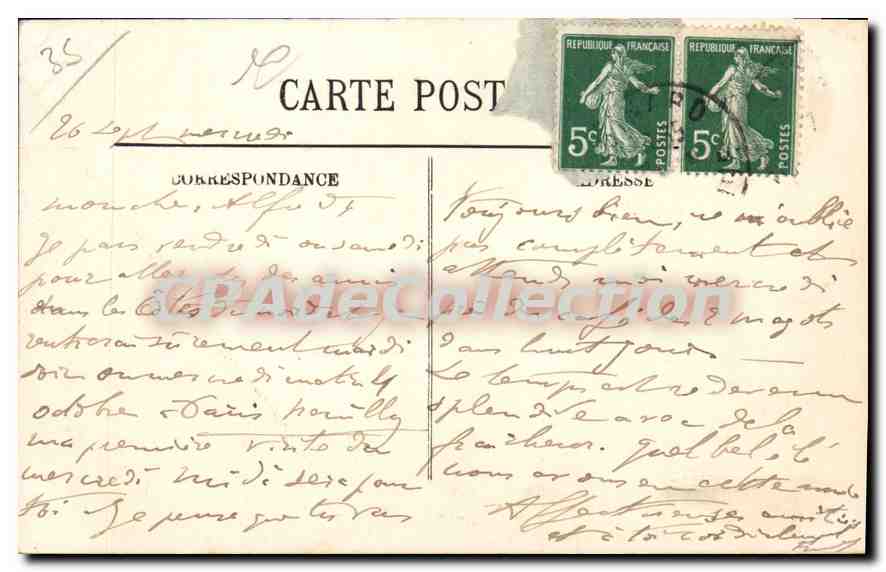 35
CARTE POST
REPUBLIQUE FRANÇAISE
5c
POSTES
REPUBLIQUE FRANÇAISE
5c
POSTES
26 Sept mercredi
CORRESPONDANCE
ADRESSE
mon cher Alfred
Je pars vendredi ou samedi
pour aller des amis
dans les Côtes du nord
rentrerai sûrement mardi
soir ou mercredi matin 4
octobre à Paris
ma première visite du
mercredi midi sera pour
toi Je pense que tu vas
Toujours bien, ne m'oublie
pas complètement et
attends moi mercredi
près du café des 2 magots
dans huit jours.
Le temps est redevenu
splendide avec de la
fraicheur. Quel bel été
nous avons eu cette année
Affectueuses amitiés
et à toi cordialement
CPAdeCollection.com